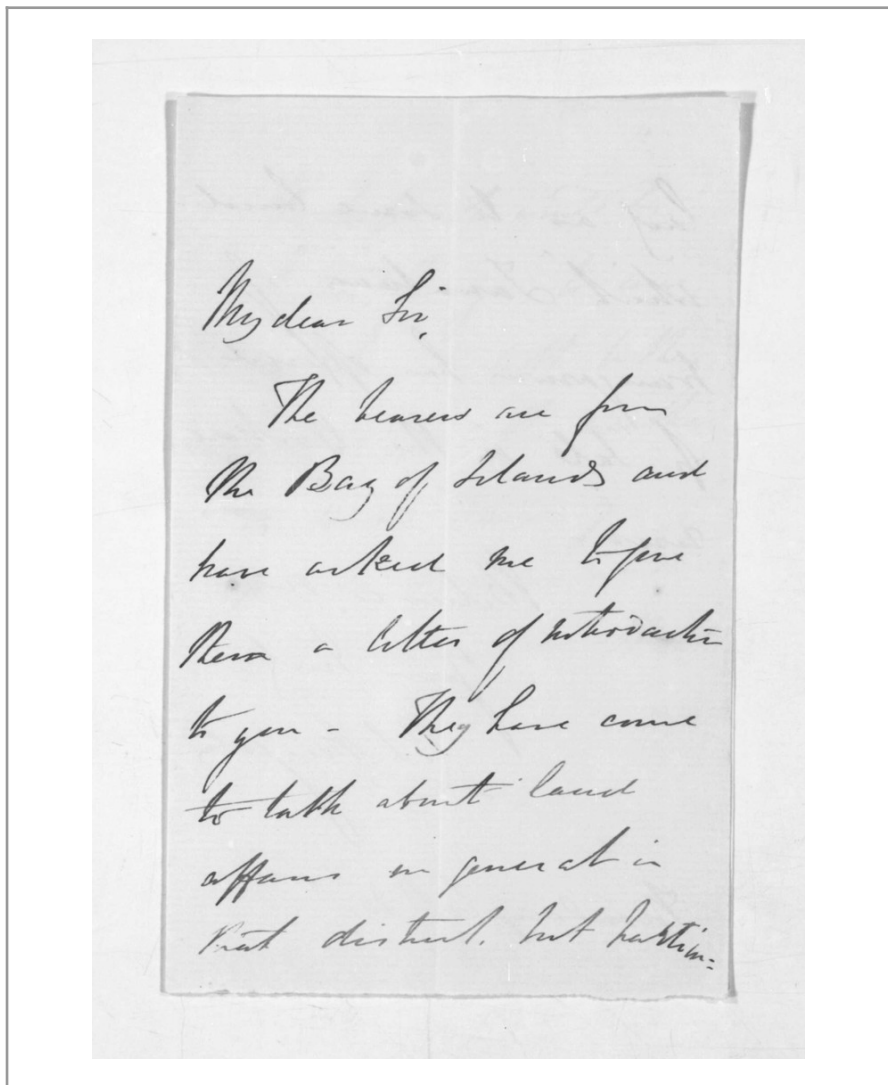 My dear Sir,
The bearers are from
the Bay of Islands and
have asked me to give
them a letter of introduction
to you - They have come
to talk about land
affairs in general in
that district. but particu=